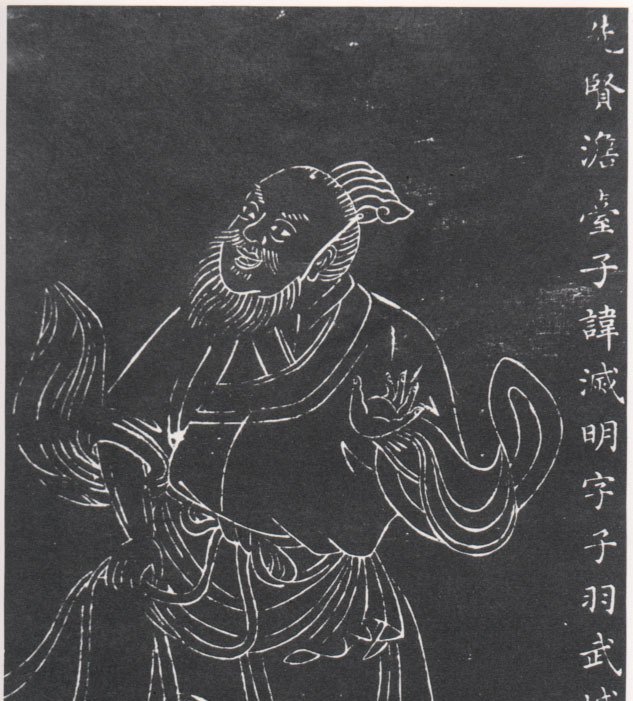 先賢澹臺子諱滅明字子羽武城